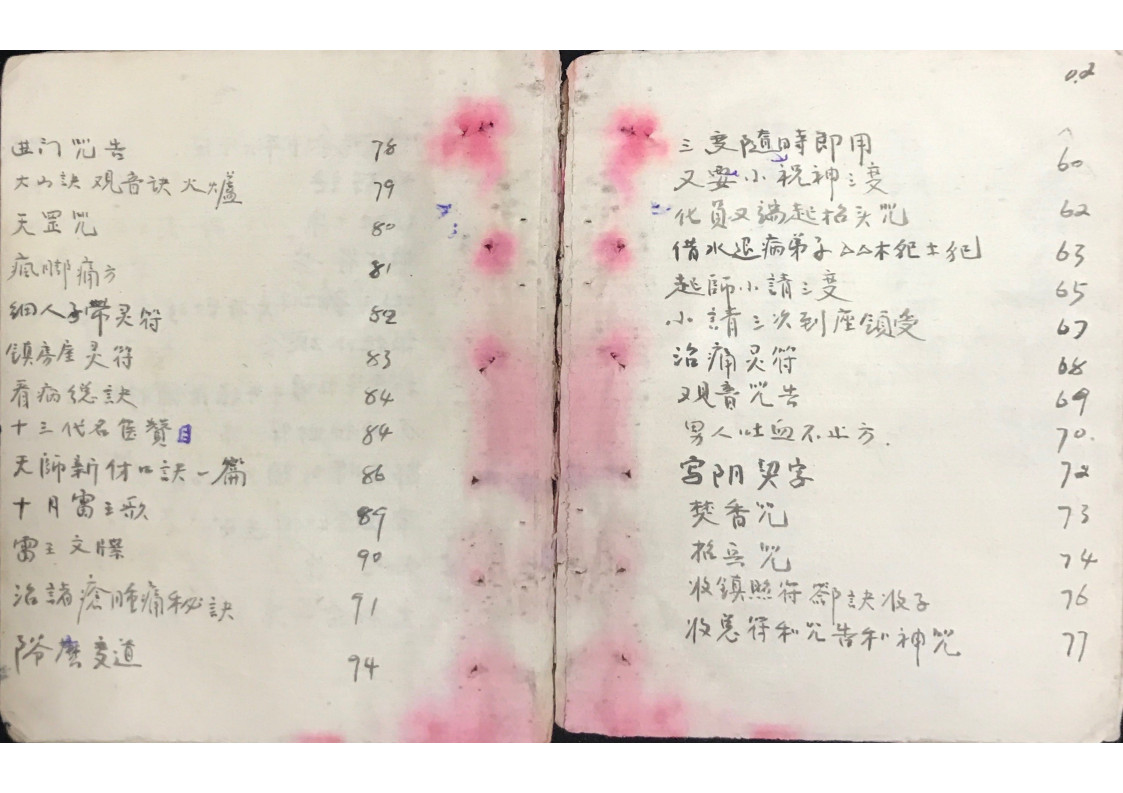 0.2
三变隨時即用
又要小祝神三变 60
化員又端起招头咒 62
借水退病弟子△△木犯土犯 63
起師小請三变 65
小請三次到座領受 67
治痛灵符 68
观音咒告 69
男人吐血不止方. 70.
写阴契字 72
焚香咒 73
招兵咒 74
收鎮煞符 訣收子 76
收惡符和咒告和神咒 77
进门咒告 78
大山訣观音訣火爐 79
天罡咒 80
瘋脚痛方 81
細人子帶灵符 82
鎮房屋灵符 83
看病總訣 84
十三代名医贊目 84
天師新付口訣一篇 86
十月雷王歌 89
雷王文牒 90
治諸瘡腫痛秘訣 91
变道 94